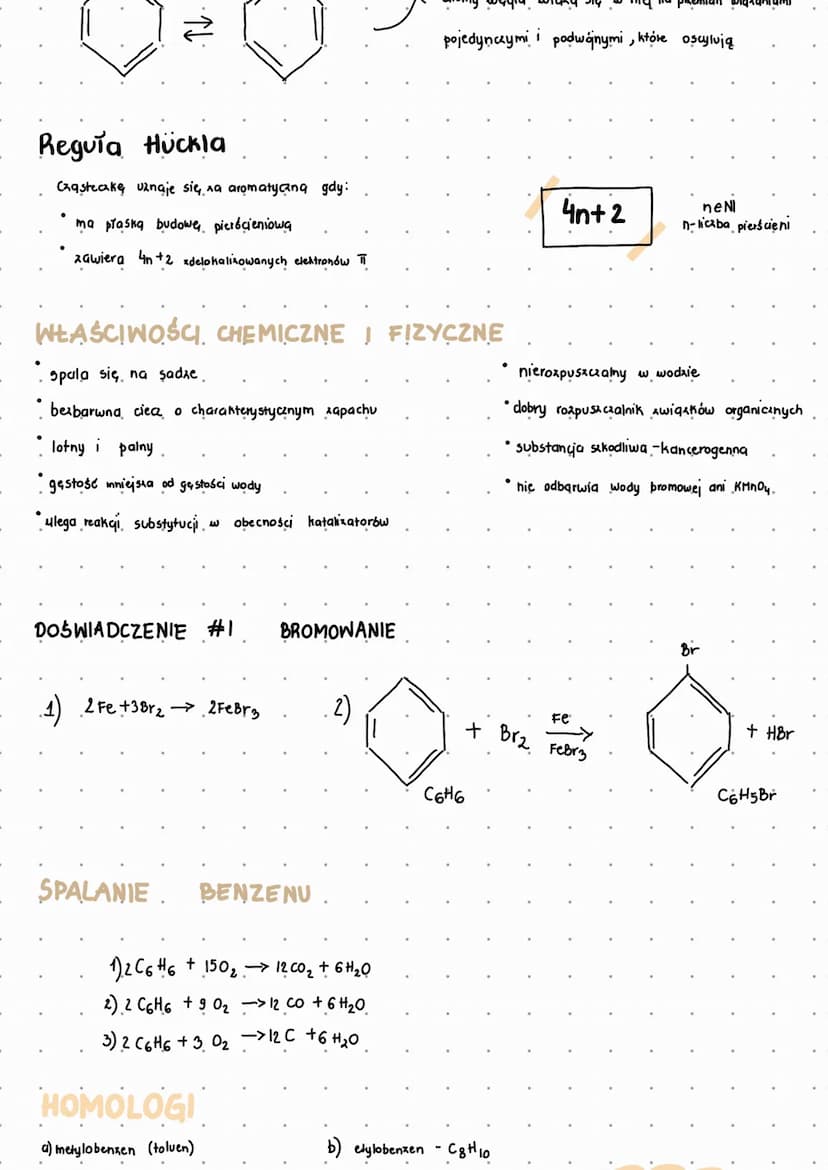 pojedynczymi i podwójnymi, które oscylują
Reguła Hückla
Cząsteczkę uznaje się za aromatyczną gdy:
• ma płaską budowę pierścieniową
• zawiera 4n+2 zdelokalizowanych elektronów π
4n+2
n∈N
n-liczba pierścieni
WŁAŚCIWOŚCI CHEMICZNE I FIZYCZNE
• spala się na sadzę
• bezbarwna ciecz o charakterystycznym zapachu
• lotny i palny
• gęstość mniejsza od gęstości wody
• ulega reakcji substytucji w obecności katalizatorów
• nierozpuszczalny w wodzie
• dobry rozpuszczalnik związków organicznych
• substancja szkodliwa - kancerogenna
• nie odbarwia wody bromowej ani KMnO₄
DOŚWIADCZENIE #1 BROMOWANIE
1) 2Fe+3Br₂ → 2FeBr₃
2) + Br₂ Fe → FeBr₃ Br + HBr
C₆H₆ C₆H₅Br
SPALANIE BENZENU
1) 2C₆H₆ + 15O₂ → 12CO₂ + 6H₂O
2) 2 C₆H₆ + 9 O₂ → 12 CO + 6H₂O
3) 2 C₆H₆ + 3 O₂ → 12 C + 6 H₂O
HOMOLOGI
a) metylobenzen (toluen) b) etylobenzen - C₈H₁₀